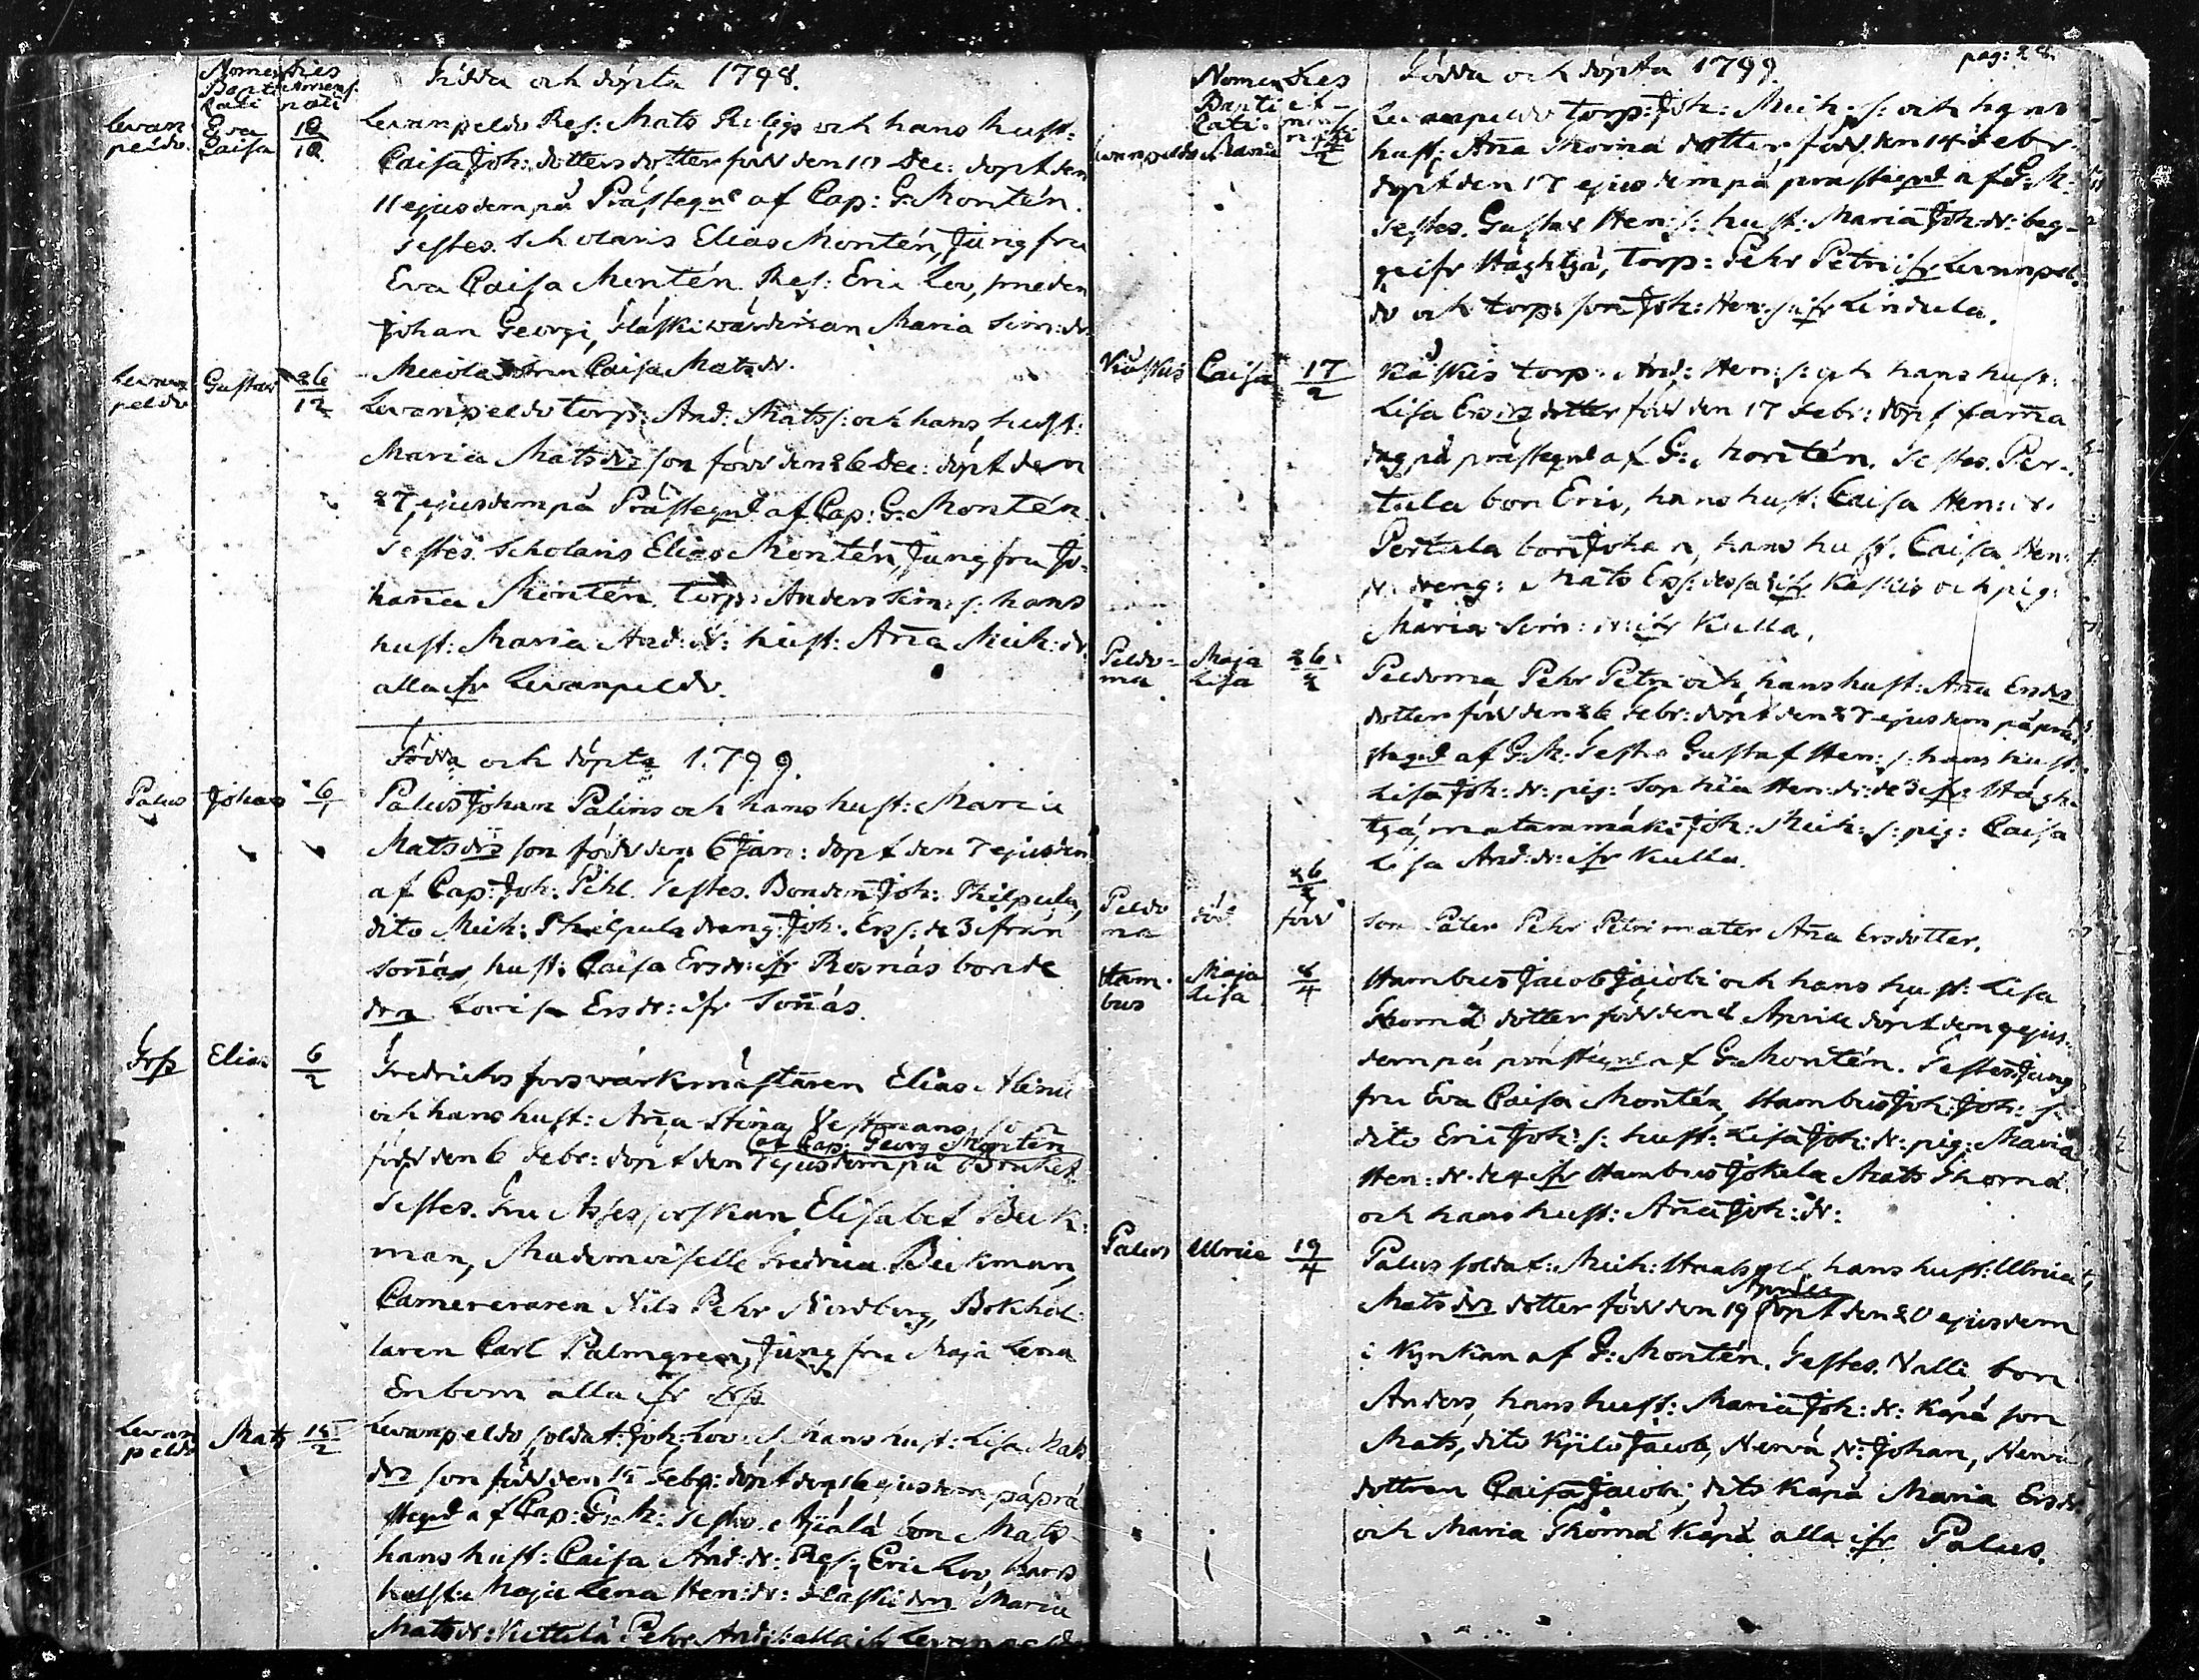 Nomen Dies
Bapti et mens.
cati nati
Födda och döpta 1798.
Levan
peldo
Eva
Caisa
10
12
Levanpeldo Res: Mats Religs och hans hust:
Caisa Joh: dotters dotter född den 10 Dec: döpt den
11 ejusdem på Prästegud af Cap: G: Montén.
Testes. Scholaris Elias Montén, Jungfru
Eva Caisa Montén Res: Eric Lov, smeden
Johan Georgi, Maria Sim: dr.
Caisa Mats dr.
Levan
peldo
Gustav
26
12
Levanpeldo torp: And: Mats s: och hans hust:
Maria Mats drs son född den 26 Dec: döpt den
27 ejusdem på Prästegud af Cap: G: Montén.
Testes. Scholaris Elias Montén, Jungfru Jo-
hanna Montén. torp: Anders Sim: s: hans
hust: Maria And: dr: hust: Aña Mich: dr
alla ifr Levanpeldo.
Födda och döpta 1799.
Palus
Johan
6
1
Palus Johan Palins och hans hust: Maria
Mats drs son född den 6 Jan: döpt den 7 ejusdem
af Cap: Joh: Pihl. Testes. Bonden Joh: Philpula,
dito Mich: Philpula dreng: Joh: Ers s: de 3 ifrån
Soñäs, hust: Caisa Ers dr: ifr Rosnäs bonde
dra Lovisa Ers dr: ifr Soñäs.
Frfs
Elias
6
2
Fredrichsforswärkmästaren Elias Alenii
och hans hust: Aña Stina Vestmans son
af Cap: Georg Montén
född den 6 Febr: döpt den 7 ejusdem på Bruket.
Testes. Fru Assessorskan Elisabet Beck-
man, Mademoiselle Fredrica Beckman,
Camereraren Nils Pehr Nordberg, Bokhål-
laren Carl Palmgren, Jungfru Maja Lena
Enbom alla ifr Frfs
Levan
peldo
Mats
15
2
Levanpeldo soldat: Joh: Lov och hans hust: Lisa Mats
drs son född den 15 Febr: döpt den 16 ejusdem på prä
stegud af Cap: G: M: Testes. Ajälä bon Mats
hans hust: Caisa And: dr: Res: Eric Lov, hans
hust: Maja Lena Hen: dr: Maria
Mats dr: Kettelä Pehr And: s: alla ifr Levanpeldo
pag: 28.
Nomen Dies
Bapti et
cati. mens.
nati
Födda och döpta 1799.
Levanpeldo
Maria
14
2
Levanpeldo torp: Joh: Mich: s: och hans
hust: Aña Thomä dotter född den 14 Febr.
döpt den 17 ejusdem på prästegud af G: M:
Testes. Gustav Hen: s: hust: Maria Joh: dr: beg-
ge ifr Häghtjä, torp: Pehr Petri ifr Levanpel
do och torp: son Joh: Hen: s: ifr Lindula.
Käskis
Caisa
17
2
Käskis torp: And: Hen: s: och hans hust:
Lisa Ersdrs dotter född den 17 Febr: döpt sama
dag på prästegud af G: Montén. Testes. Per-
tula bon Eric, hans hust: Caisa Hen: dr.
Pertula bon Johan, hans hust: Caisa Hen:
dr. dreng: Mats Ers s: dessa ifr Käskis och pig:
Maria Sim: dr: ifr Kulla.
Peldo=
ma
Maja
Lisa
26
2
Peldoma Pehr Petri och hans hust: Aña Ersdrs
dotter född den 26 Febr: döpt den 27 ejusdem på prä
stegud af G: M: Testes Gustaf Hen: s: hans hust:
Lisa Joh: dr: pig: Sophia Hen: dr: de 3 ifr Hägh-
tjä, matammäki Joh: Mich: s: pig: Caisa
Lisa And: dr: ifr Kulla.
Peldo
ma
död
26
2
född
son Pater Pehr Petri mater Aña Ersdotter.
Ham-
bus
Maja
Lisa
8
4
Hambus Jacob Jacobi och hans hust: Lisa
Thomä dotter född den 8 Aprill döpt den 9 ejus-
dem på prästegud af G: Montén. Testes. Jung
fru Eva Caisa Montén, Hambus Joh: Joh: s:
dito Eric Joh: s: hust: Lisa Joh: dr: pig: Maria
Hen: dr. de 4 ifr Hambus Jokela Mats Thomä
och hans hust: Aña Joh: dr:
Palus
Ulrica
19
4
Palus soldat: Mich: och hans hust: Ulrica
Mats drs dotter född den 19 Aprill döpt den 20 ejusdem
i Kyrkan af G: Montén. Testes. Nalli bon
Anders, hans hust: Maria Joh: dr: Käpä son
Mats, dito Kjilo Jacob, Nervä dr: Johan, Nervä
dottren Caisa Jacobi, dito Käpä Maria Ersdr
och Maria Thomä Käpä alla ifr Palus.